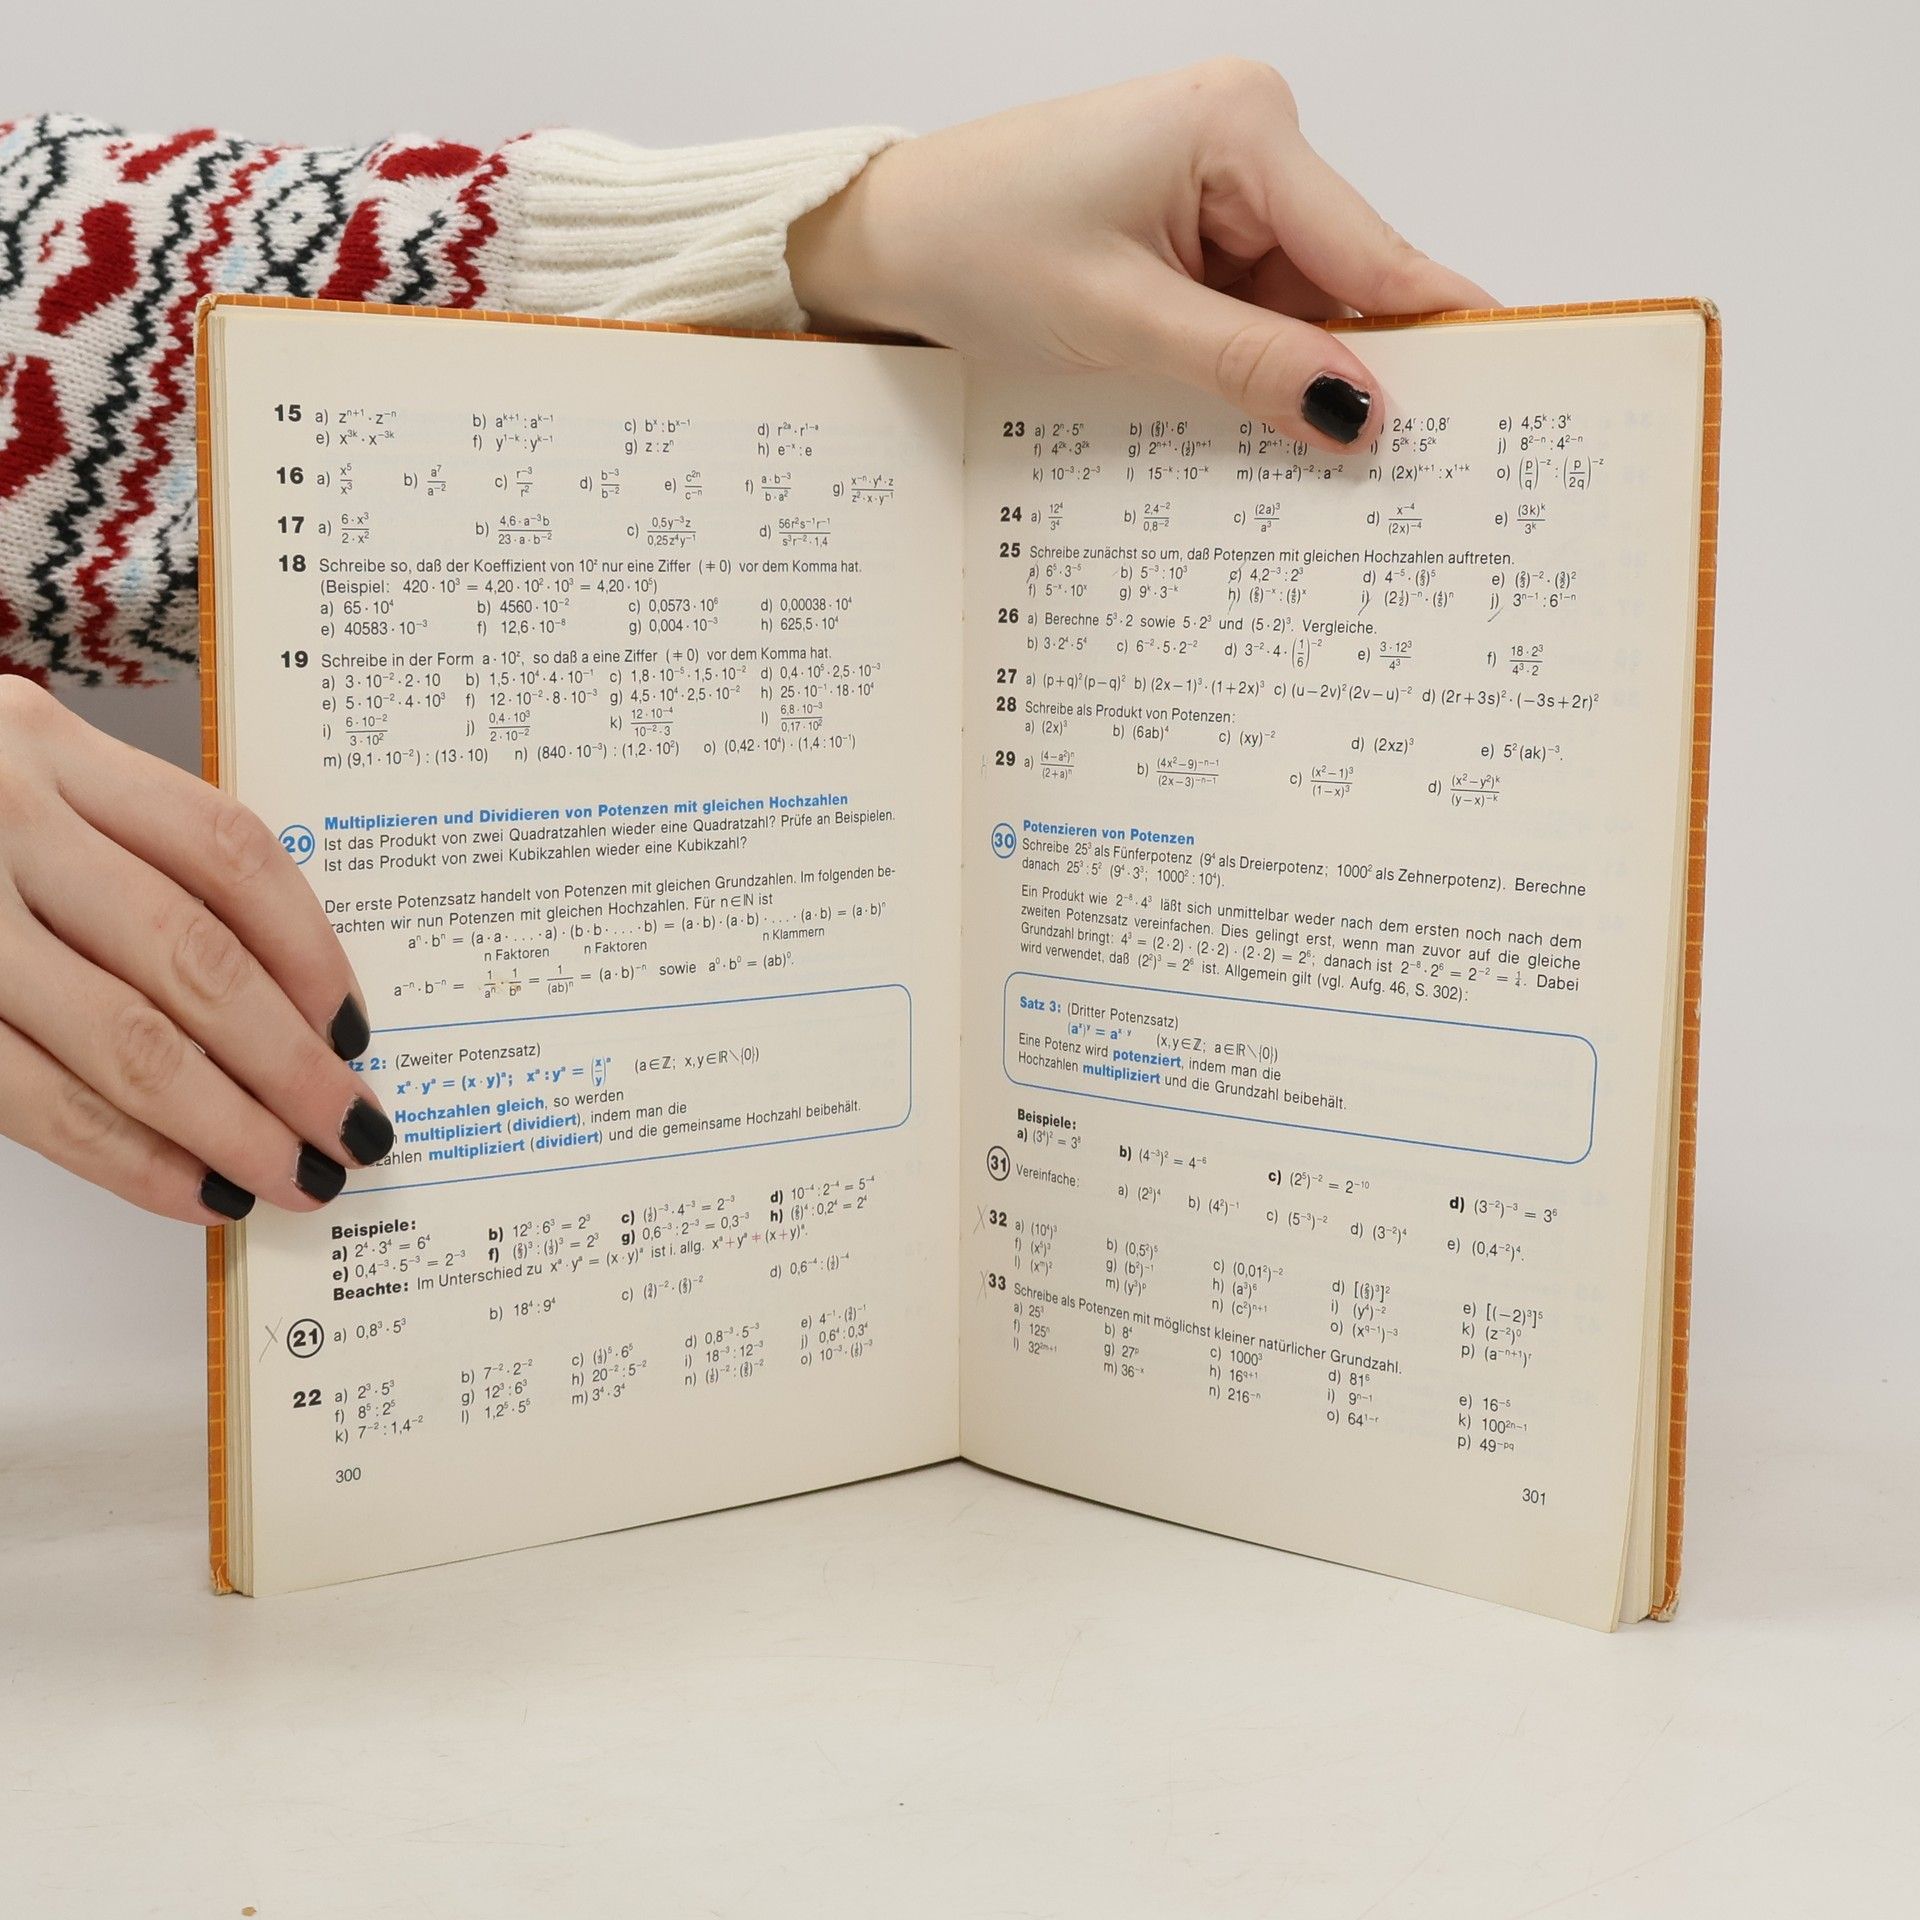 15 a) zⁿ⁺¹ · z⁻ⁿ b) aᵏ⁺¹ : aᵏ⁻¹ c) bˣ : bˣ⁻¹ d) r²ᵃ · r¹⁻ᵃ
e) x³ᵏ · x⁻³ᵏ f) y¹⁻ᵏ : yᵏ⁻¹ g) z : zⁿ h) e⁻ˣ : e
16 a) x⁵/x³ b) a⁷/a⁻² c) r⁻³/r² d) b⁻³/b⁻² e) c²ⁿ/c⁻ⁿ f) a · b⁻³/b · a² g) x⁻ⁿ · y⁴ · z/z² · x · y⁻¹
17 a) 6 · x³/2 · x² b) 4,6 · a⁻³b/23 · a · b⁻² c) 0,5y⁻³z/0,25z⁴y⁻¹ d) 56r²s⁻¹r⁻¹/s³r⁻² · 1,4
18 Schreibe so, daß der Koeffizient von 10ᶻ nur eine Ziffer (≠ 0) vor dem Komma hat.
(Beispiel: 420 · 10³ = 4,20 · 10² · 10³ = 4,20 · 10⁵)
a) 65 · 10⁴ b) 4560 · 10⁻² c) 0,0573 · 10⁶ d) 0,00038 · 10⁴
e) 40583 · 10⁻³ f) 12,6 · 10⁻⁸ g) 0,004 · 10⁻³ h) 625,5 · 10⁴
19 Schreibe in der Form a · 10ᶻ, so daß a eine Ziffer (≠ 0) vor dem Komma hat.
a) 3 · 10⁻² · 2 · 10 b) 1,5 · 10⁴ · 4 · 10⁻¹ c) 1,8 · 10⁻⁵ · 1,5 · 10⁻² d) 0,4 · 10⁵ · 2,5 · 10⁻³
e) 5 · 10⁻² · 4 · 10³ f) 12 · 10⁻² · 8 · 10⁻³ g) 4,5 · 10⁴ · 2,5 · 10⁻² h) 25 · 10⁻¹ · 18 · 10⁴
i) 6 · 10⁻²/3 · 10² j) 0,4 · 10³/2 · 10⁻² k) 12 · 10⁻⁴/10⁻² · 3 l) 6,8 · 10⁻³/0,17 · 10²
m) (9,1 · 10⁻²) : (13 · 10) n) (840 · 10⁻³) : (1,2 · 10²) o) (0,42 · 10⁴) · (1,4 : 10⁻¹)
Multiplizieren und Dividieren von Potenzen mit gleichen Hochzahlen
20 Ist das Produkt von zwei Quadratzahlen wieder eine Quadratzahl? Prüfe an Beispielen.
Ist das Produkt von zwei Kubikzahlen wieder eine Kubikzahl?
Der erste Potenzsatz handelt von Potenzen mit gleichen Grundzahlen. Im folgenden be-
rachten wir nun Potenzen mit gleichen Hochzahlen. Für n∈ℕ ist
aⁿ · bⁿ = (a · a · . . . . · a) · (b · b · . . . . · b) = (a · b) · (a · b) · . . . . · (a · b) = (a · b)ⁿ
n Faktoren n Faktoren n Klammern
a⁻ⁿ · b⁻ⁿ = 1/aⁿ · 1/bⁿ = 1/(ab)ⁿ = (a · b)⁻ⁿ sowie a⁰ · b⁰ = (ab)⁰.
tz 2: (Zweiter Potenzsatz)
xᵃ · yᵃ = (x · y)ᵃ; xᵃ : yᵃ = (x/y)ᵃ (a∈ℤ; x,y∈ℝ\{0})
Hochzahlen gleich, so werden
multipliziert (dividiert), indem man die
zahlen multipliziert (dividiert) und die gemeinsame Hochzahl beibehält.
Beispiele:
a) 2⁴ · 3⁴ = 6⁴ b) 12³ : 6³ = 2³ c) (1/2)⁻³ · 4⁻³ = 2⁻³ d) 10⁻⁴ : 2⁻⁴ = 5⁻⁴
e) 0,4⁻³ · 5⁻³ = 2⁻³ f) (2/3)³ : (1/3)³ = 2³ g) 0,6⁻³ : 2⁻³ = 0,3⁻³ h) : 0,2⁴ = 2⁴
Beachte: Im Unterschied zu xᵃ · yᵃ = (x · y)ᵃ ist i. allg. xᵃ + yᵃ ≠ (x + y)ᵃ.
21 a) 0,8³ · 5³ b) 18⁴ : 9⁴ c) d) 0,6⁻⁴ : (1/2)⁻⁴
22 a) 2³ · 5³ b) 7⁻² · 2⁻² c) (1/3)⁵ · 6⁵ d) 0,8⁻³ · 5⁻³ e)
f) 8⁵ : 2⁵ g) 12³ : 6³ h) 20⁻² : 5⁻² i) 18⁻³ : 12⁻³ j) 0,6⁴ : 0,3⁴
k) 7⁻² : 1,4⁻² l) 1,2⁵ · 5⁵ m) 3⁴ · 3⁴ n) o)
300
23 a) 2ⁿ · 5ⁿ b) c) d) 2,4ʳ : 0,8ʳ e) 4,5ᵏ : 3ᵏ
f) 4²ᵏ · 3²ᵏ g) 2ⁿ⁺¹ · (1/2)ⁿ⁺¹ h) 2ⁿ⁺¹ : i) 5²ᵏ : 5²ᵏ j) 8²⁻ⁿ : 4²⁻ⁿ
k) 10⁻³ : 2⁻³ l) 15⁻ᵏ : 10⁻ᵏ m) (a + a²)⁻² : a⁻² n) (2x)ᵏ⁺¹ : x¹⁺ᵏ o) (p/q)⁻ᶻ : (p/2q)⁻ᶻ
24 a) 12⁴/3⁴ b) 2,4⁻²/0,8⁻² c) (2a)³/a³ d) x⁻⁴/(2x)⁻⁴ e) (3k)ᵏ/3ᵏ
25 Schreibe zunächst so um, daß Potenzen mit gleichen Hochzahlen auftreten.
a) 6⁵ · 3⁻⁵ b) 5⁻³ : 10³ c) 4,2⁻³ : 2³ d) e)
f) 5⁻ˣ · 10ˣ g) 9ᵏ · 3⁻ᵏ h) i) j) 3ⁿ⁻¹ : 6¹⁻ⁿ
26 a) Berechne 5³ · 2 sowie 5 · 2³ und (5 · 2)³. Vergleiche.
b) 3 · 2⁴ · 5⁴ c) 6⁻² · 5 · 2⁻² d) 3⁻² · 4 · (1/6)⁻² e) 3 · 12³/4³ f) 18 · 2³/4³ · 2
27 a) (p+q)²(p−q)² b) (2x−1)³ · (1+2x)³ c) (u−2v)²(2v−u)⁻² d) (2r+3s)² · (−3s+2r)²
28 Schreibe als Produkt von Potenzen:
a) (2x)³ b) (6ab)⁴ c) (xy)⁻² d) (2xz)³ e) 5²(ak)⁻³.
29 a) (4−a²)ⁿ/(2+a)ⁿ b) (4x²−9)⁻ⁿ⁻¹/(2x−3)⁻ⁿ⁻¹ c) (x²−1)³/(1−x)³ d) (x²−y²)ᵏ/(y−x)⁻ᵏ
Potenzieren von Potenzen
30 Schreibe 25³ als Fünferpotenz (9⁴ als Dreierpotenz; 1000² als Zehnerpotenz). Berechne
danach 25³ : 5² (9⁴ · 3³; 1000² : 10⁴).
Ein Produkt wie 2⁻⁸ · 4³ läßt sich unmittelbar weder nach dem ersten noch nach dem
zweiten Potenzsatz vereinfachen. Dies gelingt erst, wenn man zuvor auf die gleiche
Grundzahl bringt: 4³ = (2 · 2) · (2 · 2) · (2 · 2) = 2⁶; danach ist 2⁻⁸ · 2⁶ = 2⁻² = 1/4. Dabei
wird verwendet, daß (2²)³ = 2⁶ ist. Allgemein gilt (vgl. Aufg. 46, S. 302):
Satz 3: (Dritter Potenzsatz)
(aˣ)ʸ = aˣ · ʸ (x,y∈ℤ; a∈ℝ\{0})
Eine Potenz wird potenziert, indem man die
Hochzahlen multipliziert und die Grundzahl beibehält.
Beispiele:
a) (3⁴)² = 3⁸ b) (4⁻³)² = 4⁻⁶ c) (2⁵)⁻² = 2⁻¹⁰ d) (3⁻²)⁻³ = 3⁶
31 Vereinfache: a) (2³)⁴ b) (4²)⁻¹ c) (5⁻³)⁻² d) (3⁻²)⁴ e) (0,4⁻²)⁴.
32 a) (10⁴)³ b) (0,5²)⁵ c) (0,01²)⁻² d) [(2/3)³]² e) [(−2)³]⁵
f) (x⁵)³ g) (b²)⁻¹ h) (a³)⁶ i) (y⁴)⁻² k) (z⁻²)⁰
l) (xᵐ)² m) (y³)ᵖ n) (c²)ⁿ⁺¹ o) (x^(q−1))⁻³ p) (a⁻ⁿ⁺¹)ʳ
33 Schreibe als Potenzen mit möglichst kleiner natürlicher Grundzahl.
a) 25³ b) 8⁴ c) 1000³ d) 81⁶ e) 16⁻⁵
f) 125ⁿ g) 27ᵖ h) 16^(q+1) i) 9ⁿ⁻¹ k) 100²ⁿ⁻¹
l) 32²ᵐ⁺¹ m) 36⁻ˣ n) 216⁻ⁿ o) 64¹⁻ʳ p) 49^(−pq)
301